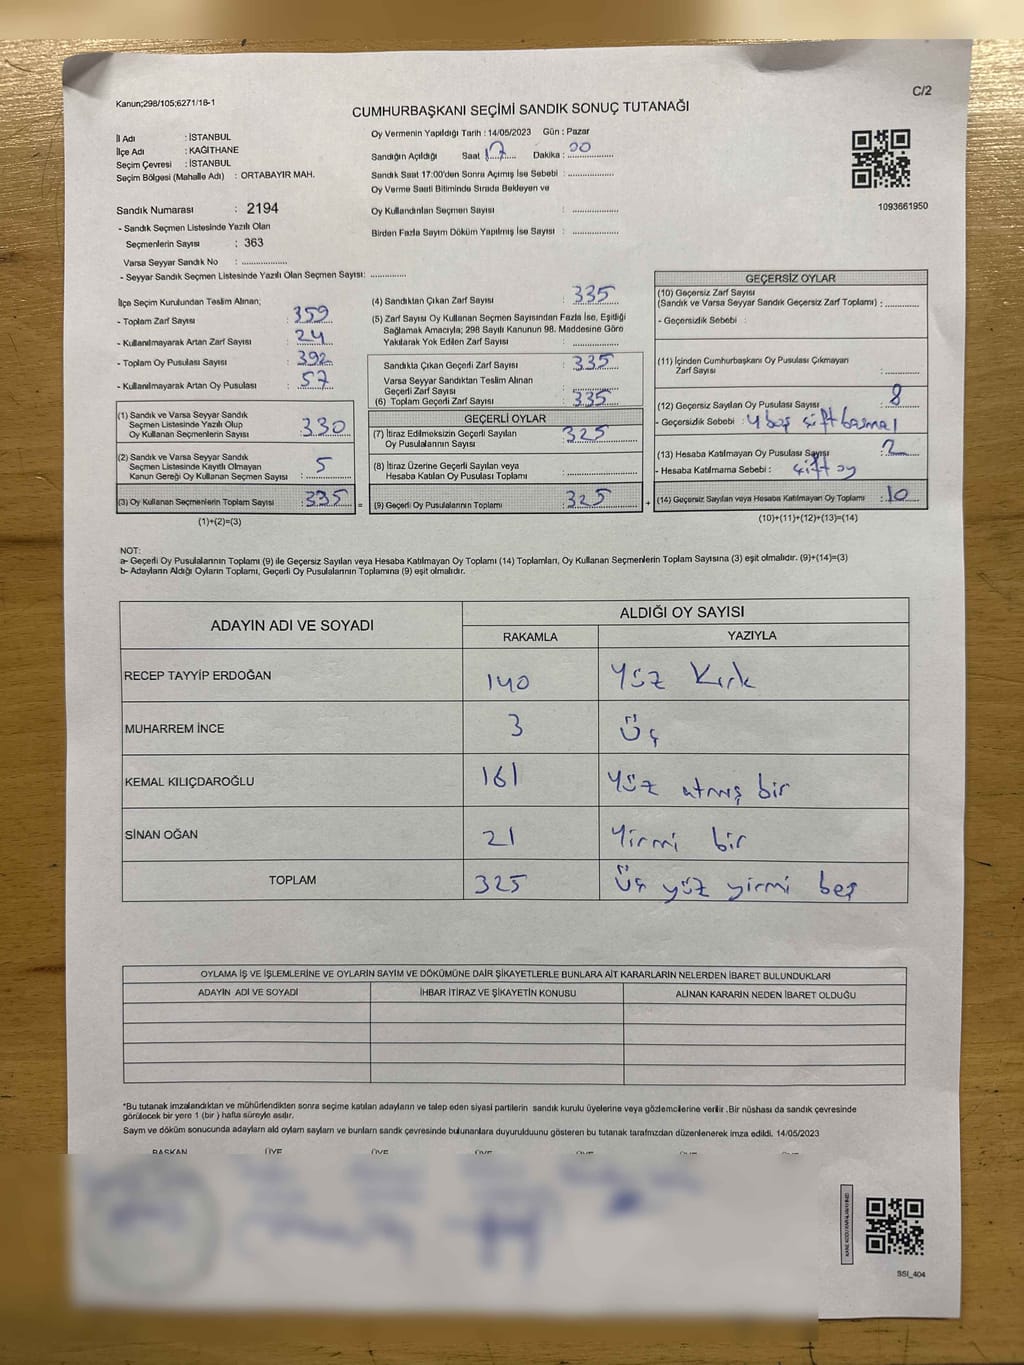 Kanun;298/105;6271/18-1
C/2
CUMHURBAŞKANI SEÇİMİ SANDIK SONUÇ TUTANAĞI
İl Adı : İSTANBUL
İlçe Adı : KAĞITHANE
Seçim Çevresi : İSTANBUL
Seçim Bölgesi (Mahalle Adı) : ORTABAYIR MAH.
Oy Vermenin Yapıldığı Tarih : 14/05/2023 Gün : Pazar
Sandığın Açıldığı Saat 17 Dakika : 00
Sandık Saat 17:00'den Sonra Açımış İse Sebebi :
Oy Verme Saati Bitiminde Sırada Bekleyen ve
Oy Kullandırılan Seçmen Sayısı :
Birden Fazla Sayım Döküm Yapılmış İse Sayısı :
1093661950
Sandık Numarası : 2194
- Sandık Seçmen Listesinde Yazılı Olan
Seçmenlerin Sayısı : 363
Varsa Seyyar Sandık No :
- Seyyar Sandık Seçmen Listesinde Yazılı Olan Seçmen Sayısı:
İlçe Seçim Kurulundan Teslim Alınan;
- Toplam Zarf Sayısı : 359
- Kullanılmayarak Artan Zarf Sayısı : 24
- Toplam Oy Pusulası Sayısı : 392
- Kullanılmayarak Artan Oy Pusulası : 57
(1) Sandık ve Varsa Seyyar Sandık
Seçmen Listesinde Yazılı Olup
Oy Kullanan Seçmenlerin Sayısı : 330
(2) Sandık ve Varsa Seyyar Sandık
Seçmen Listesinde Kayıtlı Olmayan
Kanun Gereği Oy Kullanan Seçmen Sayısı : 5
(3) Oy Kullanan Seçmenlerin Toplam Sayısı : 335 =
(1)+(2)=(3)
(4) Sandıktan Çıkan Zarf Sayısı : 335
(5) Zarf Sayısı Oy Kullanan Seçmen Sayısından Fazla İse, Eşitliği
Sağlamak Amacıyla; 298 Sayılı Kanunun 98. Maddesine Göre
Yakılarak Yok Edilen Zarf Sayısı :
Sandıkta Çıkan Geçerli Zarf Sayısı : 335
Varsa Seyyar Sandıktan Teslim Alınan
Geçerli Zarf Sayısı :
(6) Toplam Geçerli Zarf Sayısı : 335
GEÇERLİ OYLAR
(7) İtiraz Edilmeksizin Geçerli Sayılan
Oy Pusulalarının Sayısı : 325
(8) İtiraz Üzerine Geçerli Sayılan veya
Hesaba Katılan Oy Pusulası Toplamı :
(9) Geçerli Oy Pusulalarının Toplamı : 325 +
GEÇERSİZ OYLAR
(10) Geçersiz Zarf Sayısı
(Sandık ve Varsa Seyyar Sandık Geçersiz Zarf Toplamı) :
- Geçersizlik Sebebi :
(11) İçinden Cumhurbaşkanı Oy Pusulası Çıkmayan
Zarf Sayısı :
(12) Geçersiz Sayılan Oy Pusulası Sayısı : 8
- Geçersizlik Sebebi : 4 boş çift basma
(13) Hesaba Katılmayan Oy Pusulası Sayısı : 2
- Hesaba Katılmama Sebebi : çift oy
(14) Geçersiz Sayılan veya Hesaba Katılmayan Oy Toplamı : 10
(10)+(11)+(12)+(13)=(14)
NOT:
a- Geçerli Oy Pusulalarının Toplamı (9) ile Geçersiz Sayılan veya Hesaba Katılmayan Oy Toplamı (14) Toplamları, Oy Kullanan Seçmenlerin Toplam Sayısına (3) eşit olmalıdır. (9)+(14)=(3)
b- Adayların Aldığı Oyların Toplamı, Geçerli Oy Pusulalarının Toplamına (9) eşit olmalıdır.
ADAYIN ADI VE SOYADI
ALDIĞI OY SAYISI
RAKAMLA YAZIYLA
RECEP TAYYİP ERDOĞAN 140 Yüz Kırk
MUHARREM İNCE 3 Üç
KEMAL KILIÇDAROĞLU 161 Yüz atmış bir
SİNAN OĞAN 21 Yirmi bir
TOPLAM 325 Üç yüz yirmi beş
OYLAMA İŞ VE İŞLEMLERİNE VE OYLARIN SAYIM VE DÖKÜMÜNE DAİR ŞİKAYETLERLE BUNLARA AİT KARARLARIN NELERDEN İBARET BULUNDUKLARI
ADAYIN ADI VE SOYADI İHBAR İTİRAZ VE ŞİKAYETİN KONUSU ALINAN KARARIN NEDEN İBARET OLDUĞU
*Bu tutanak imzalandıktan ve mühürlendikten sonra seçime katılan adayların ve talep eden siyasi partilerin sandık kurulu üyelerine veya gözlemcilerine verilir .Bir nüshası da sandık çevresinde
görülecek bir yere 1 (bir ) hafta süreyle asılır.
Sayım ve döküm sonucunda adayların ald oyların sayların ve bunların sandk çevresinde bulunanlara duyurulduunu gösteren bu tutanak tarafmzdan düzenlenerek imza edildi. 14/05/2023
BAŞKAN ÜYE ÜYE ÜYE ÜYE ÜYE ÜYE
SSI_404